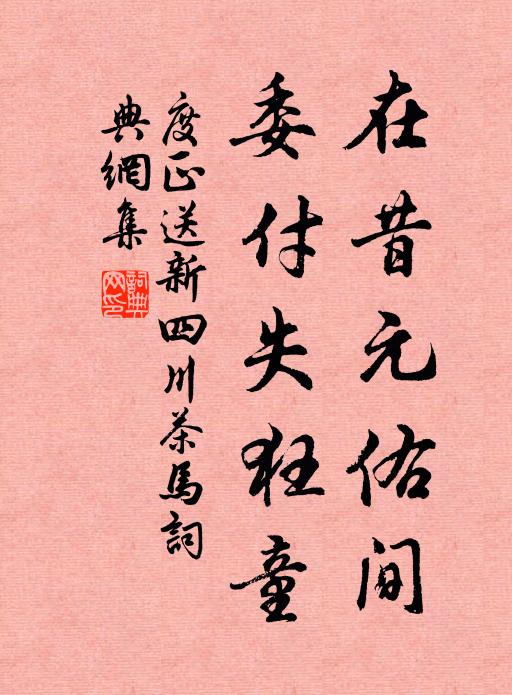 在昔元佑间
委付失狂童
度正送新四川茶馬詞
典網集
詞典网印